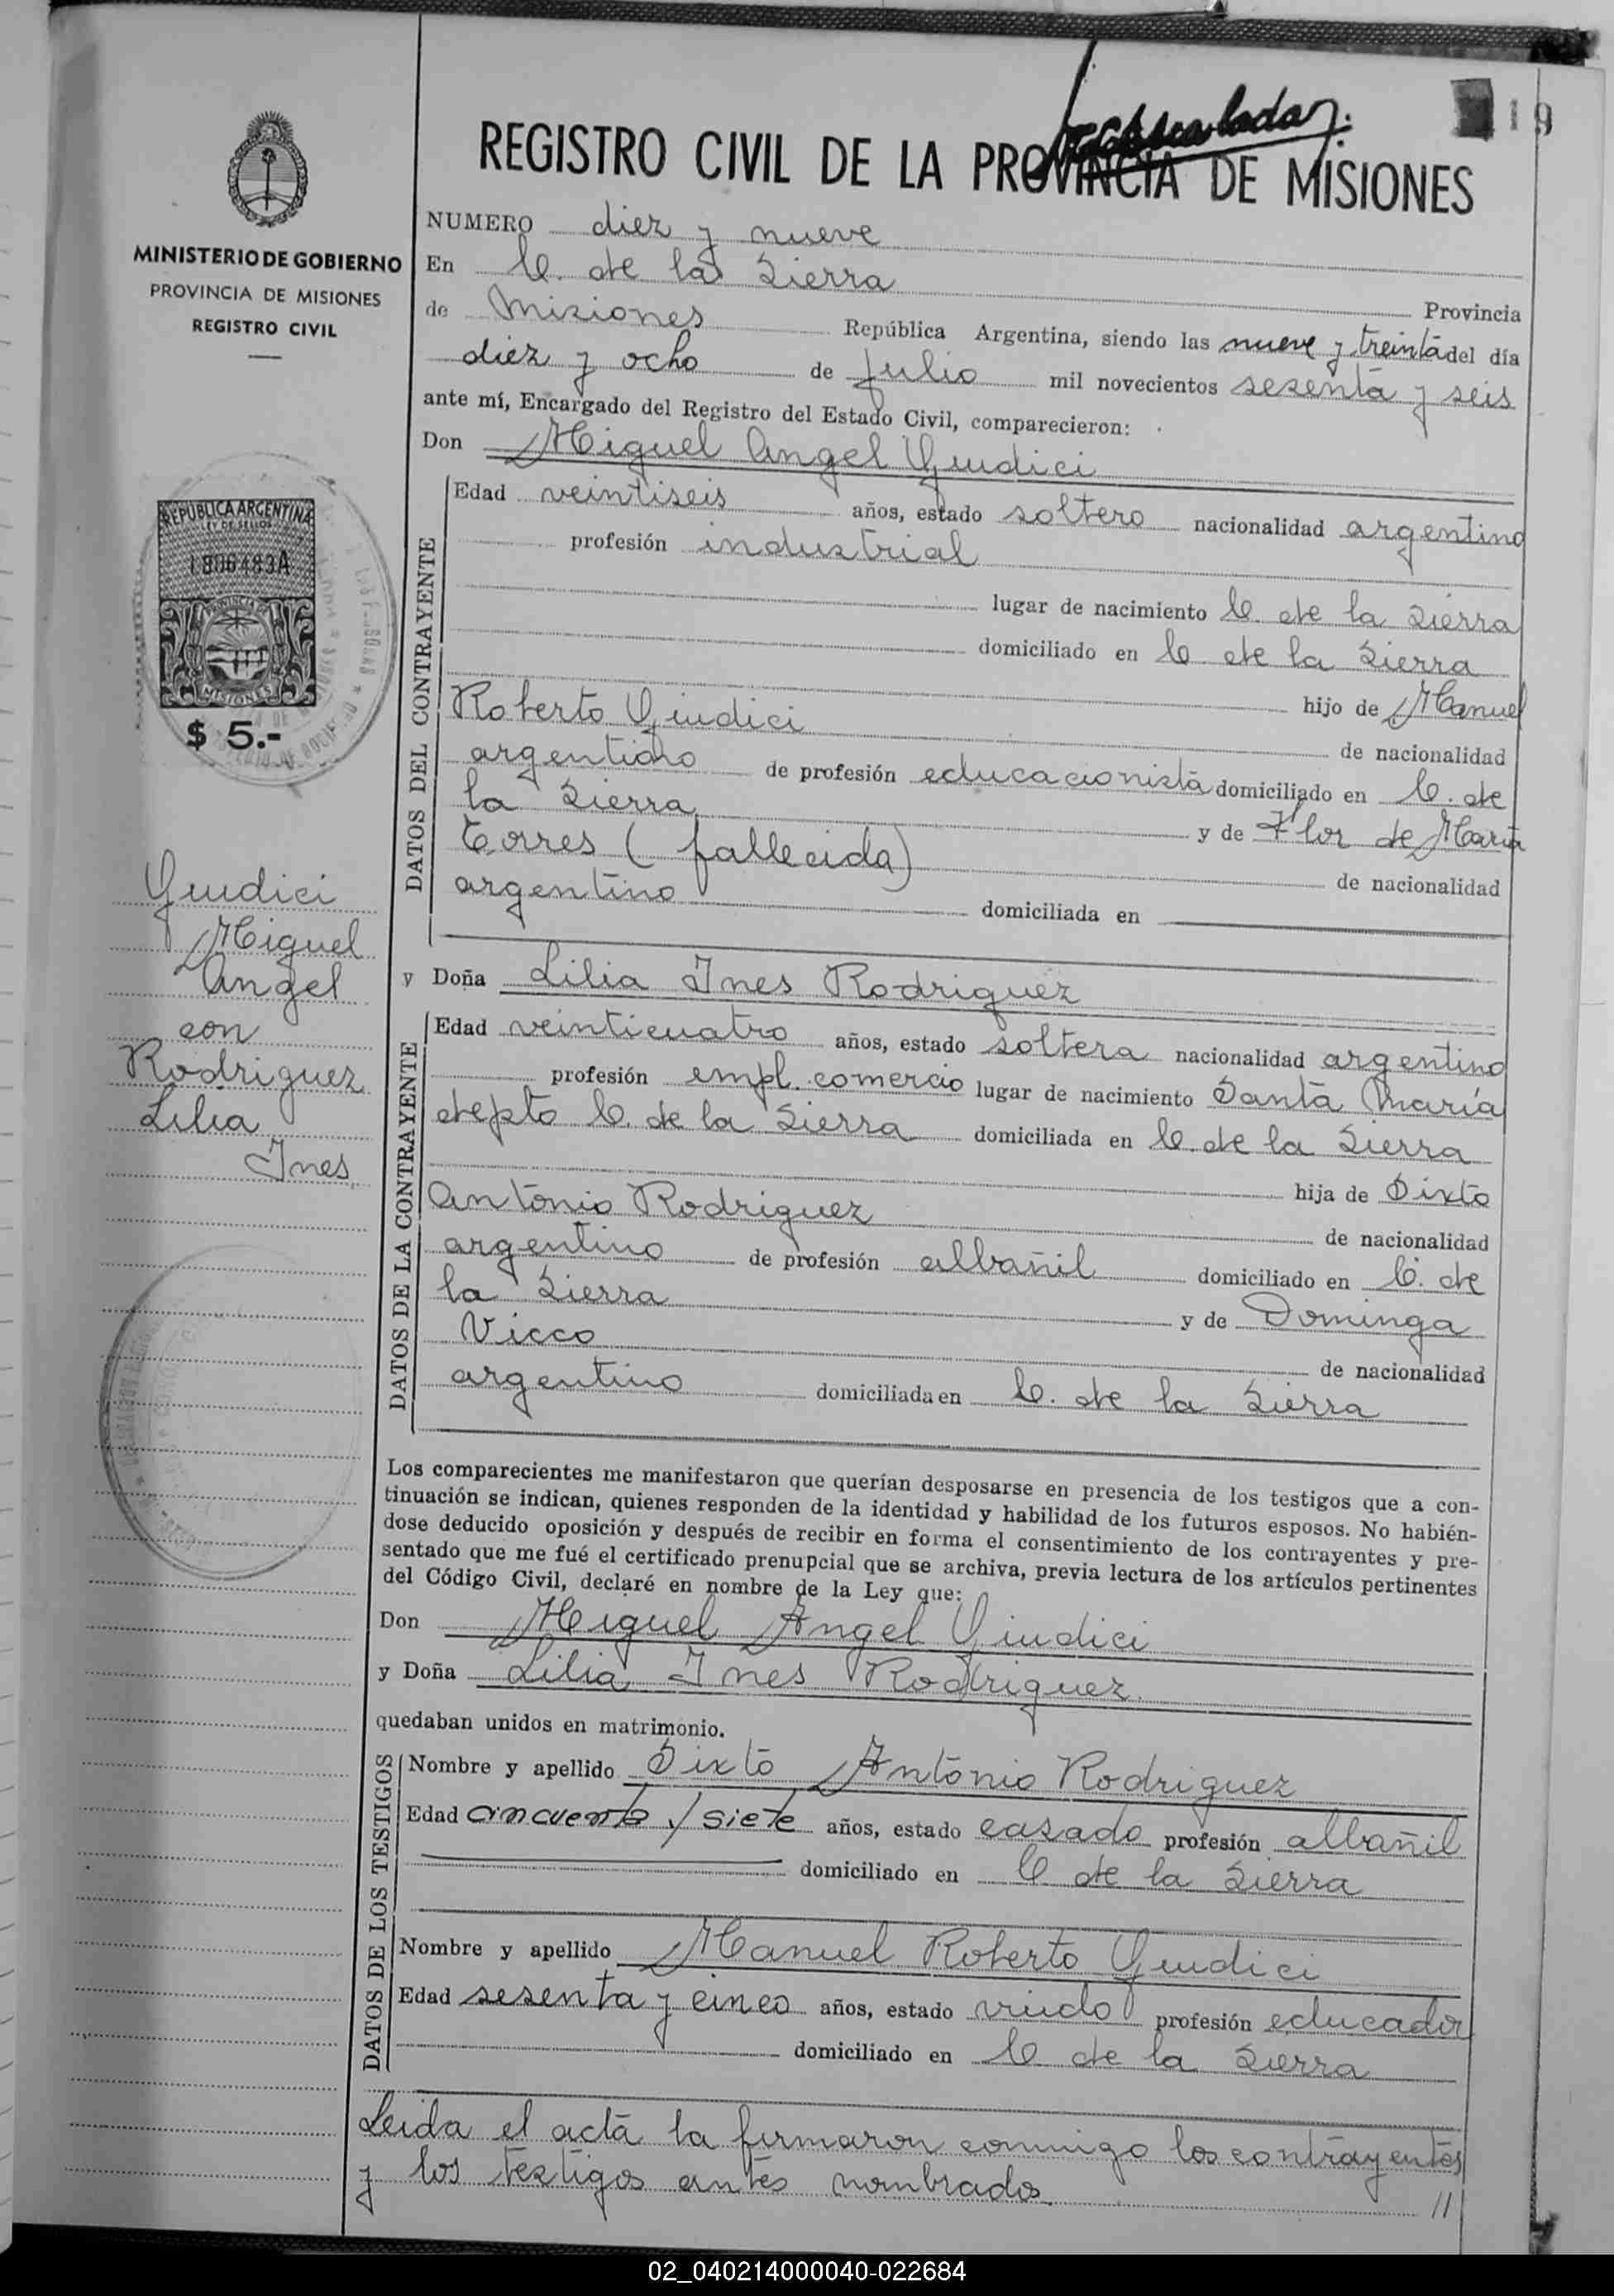 19
REGISTRO CIVIL DE LA PROVINCIA DE MISIONES
MINISTERIO DE GOBIERNO
PROVINCIA DE MISIONES
REGISTRO CIVIL
REPUBLICA ARGENTINA
LEY DE SELLOS
PROVINCIA DE
MISIONES
$ 5.-
Giudici
Miguel
Angel
con
Rodriguez
Lilia
Ines
NUMERO diez y nueve
En C. de la Sierra
Provincia
de Misiones República Argentina, siendo las nueve y treinta del día
diez y ocho de Julio mil novecientos sesenta y seis
ante mí, Encargado del Registro del Estado Civil, comparecieron:
Don Miguel Angel Giudici
DATOS DEL CONTRAYENTE
Edad veintiseis años, estado soltero nacionalidad argentino
profesión industrial
lugar de nacimiento C. de la Sierra
domiciliado en C de la Sierra
hijo de Manuel
Roberto Giudici
de nacionalidad
argentino de profesión educacionista domiciliado en C. de
la Sierra y de Flor de María
Torres (fallecida)
de nacionalidad
argentino domiciliada en
y Doña Lilia Ines Rodriguez
DATOS DE LA CONTRAYENTE
Edad veinticuatro años, estado soltera nacionalidad argentino
profesión empl. comercio lugar de nacimiento Santa María
depto C. de la Sierra domiciliada en C. de la Sierra
hija de Sixto
Antonio Rodriguez
de nacionalidad
argentino de profesión albañil domiciliado en C. de
la Sierra y de Dominga
Vicco
de nacionalidad
argentino domiciliada en C. de la Sierra
Los comparecientes me manifestaron que querían desposarse en presencia de los testigos que a con-
tinuación se indican, quienes responden de la identidad y habilidad de los futuros esposos. No habién-
dose deducido oposición y después de recibir en forma el consentimiento de los contrayentes y pre-
sentado que me fué el certificado prenupcial que se archiva, previa lectura de los artículos pertinentes
del Código Civil, declaré en nombre de la Ley que:
Don Miguel Angel Giudici
y Doña Lilia Ines Rodriguez
quedaban unidos en matrimonio.
DATOS DE LOS TESTIGOS
Nombre y apellido Sixto Antonio Rodriguez
Edad cincuenta y siete años, estado casado profesión albañil
domiciliado en C de la Sierra
Nombre y apellido Manuel Roberto Giudici
Edad sesenta y cinco años, estado viudo profesión educador
domiciliado en C de la Sierra
Leida el acta la firmaron conmigo los contrayentes
y los testigos antes nombrados //
02_040214000040-022684